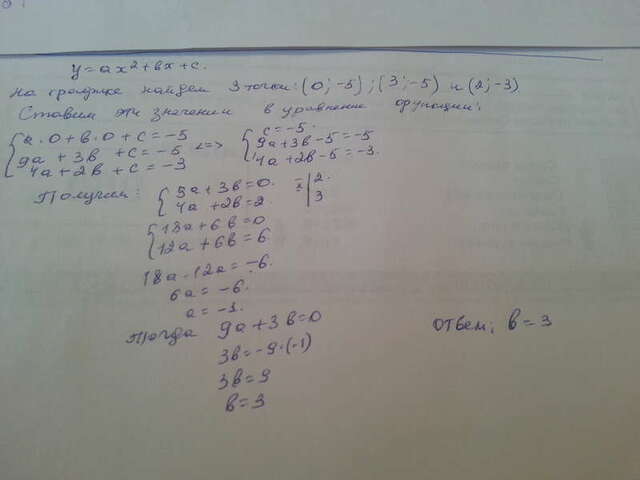 y = ax² + bx + c.
На графике найдем 3 точки: (0; -5); (3; -5) и (2; -3)
Ставим эти значения в уравнение функции:
{ a·0 + b·0 + c = -5 <=> { c = -5.
9a + 3b + c = -5 9a + 3b - 5 = -5
4a + 2b + c = -3 4a + 2b - 5 = -3.
Получим: { 9a + 3b = 0. | 2.
4a + 2b = 2. | 3
{ 18a + 6b = 0
12a + 6b = 6.
18a - 12a = -6.
6a = -6.
a = -1.
Тогда 9a + 3b = 0 Ответ: b = 3
3b = -9·(-1)
3b = 9
b = 3